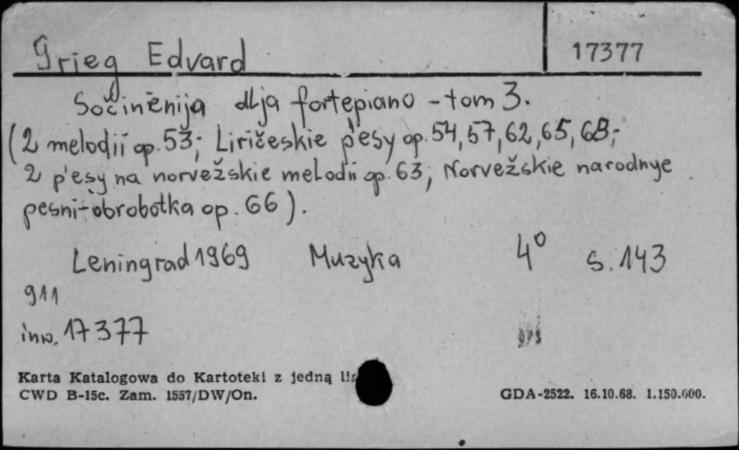 Grieg Edvard 17377
Sočinenija dlja fortepiano - tom 3.
(2 melodii op. 53; Liričeskie p'esy op. 54, 57, 62, 65, 68;
2 p'esy na norvežskie melodii op. 63; Norvežskie narodnye
pesni - obrobotka op. 66).
Leningrad 1969 Muzyka 4° s. 143
911
inw. 17377
Karta Katalogowa do Kartoteki z jedną
CWD B-15c. Zam. 1557/DW/On. GDA-2522. 16.10.68. 1.150.000.